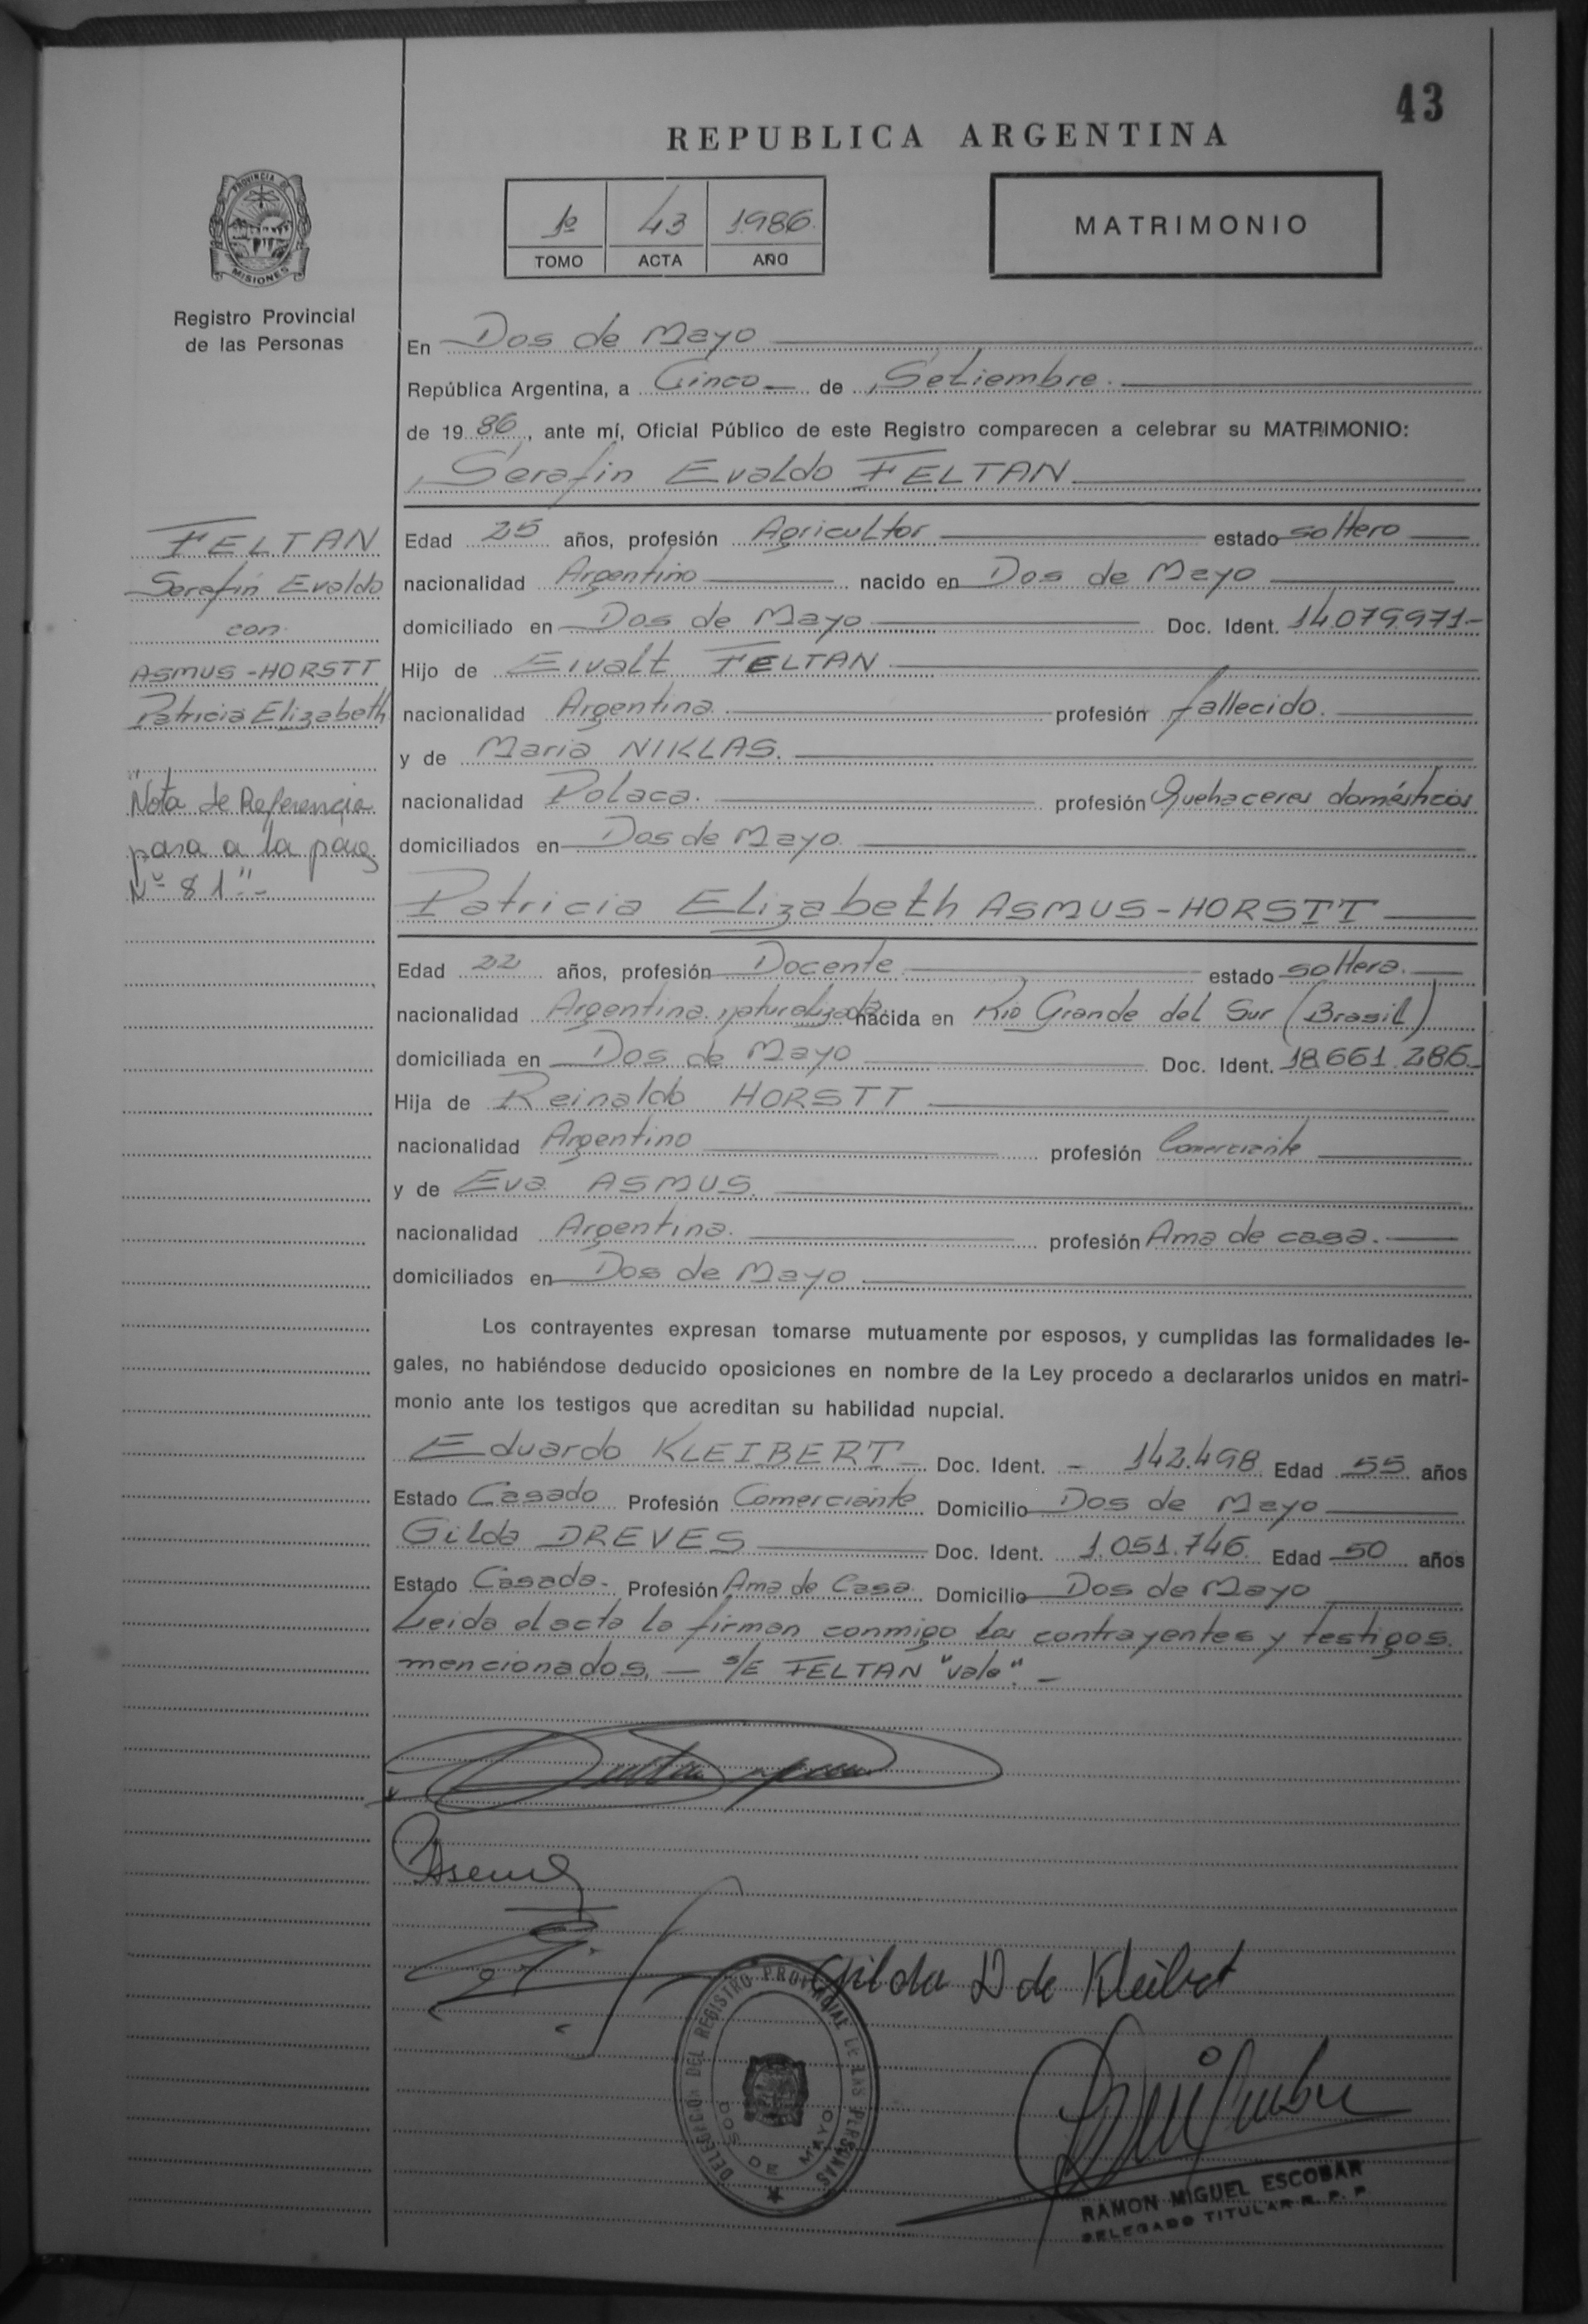 43
REPUBLICA ARGENTINA
PROVINCIA DE
MISIONES
Registro Provincial
de las Personas
1º 43 1986
TOMO ACTA AÑO
MATRIMONIO
En Dos de Mayo
República Argentina, a Cinco de Setiembre.
de 19 86, ante mí, Oficial Público de este Registro comparecen a celebrar su MATRIMONIO:
Serafin Evaldo FELTAN
FELTAN
Serafin Evaldo
con
ASMUS-HORSTT
Patricia Elizabeth
"Nota de Referencia
pasa a la pag.
Nº 81"-
Edad 25 años, profesión Agricultor estado soltero
nacionalidad Argentino nacido en Dos de Mayo
domiciliado en Dos de Mayo Doc. Ident. 14.079.971-
Hijo de Eivalt FELTAN
nacionalidad Argentina. profesión fallecido.
y de Maria NIKLAS.
nacionalidad Polaca. profesión Quehaceres domésticos
domiciliados en Dos de Mayo.
Patricia Elizabeth ASMUS-HORSTT
Edad 22 años, profesión Docente estado soltera.
nacionalidad Argentina naturalizada nacida en Rio Grande del Sur (Brasil)
domiciliada en Dos de Mayo Doc. Ident. 18.661.286-
Hija de Reinaldo HORSTT
nacionalidad Argentino profesión Comerciante
y de Eva ASMUS.
nacionalidad Argentina. profesión Ama de casa.
domiciliados en Dos de Mayo
Los contrayentes expresan tomarse mutuamente por esposos, y cumplidas las formalidades le-
gales, no habiéndose deducido oposiciones en nombre de la Ley procedo a declararlos unidos en matri-
monio ante los testigos que acreditan su habilidad nupcial.
Eduardo KLEIBERT Doc. Ident. - 142.498 Edad 55 años
Estado Casado Profesión Comerciante Domicilio Dos de Mayo
Gilda DREVES Doc. Ident. 1.051.746 Edad 50 años
Estado Casada- Profesión Ama de Casa. Domicilio Dos de Mayo
Leida el acta la firman conmigo los contrayentes y testigos
mencionados, — s/E FELTAN "vale". -
Gilda D de Kleibet
DELEGACION DEL REGISTRO PROVINCIAL DE LAS PERSONAS
DOS DE MAYO
RAMON MIGUEL ESCOBAR
DELEGADO TITULAR R. P. P.